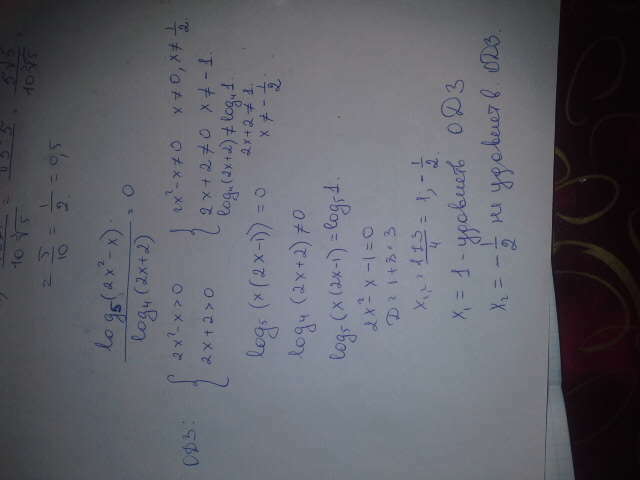 10 ∜5
= 5/10 = 1/2 = 0,5
log₅(2x²-x) / log₄(2x+2) = 0
ОДЗ: { 2x²-x>0 { 2x²-x≠0 x≠0, x≠1/2.
2x+2>0 2x+2≠0 x≠-1.
log₄(2x+2)≠log₄1.
2x+2≠1.
x≠-1/2.
log₅(x(2x-1))=0
log₄(2x+2)≠0
log₅(x(2x-1)=log₅1.
2x²-x-1=0
x₁,₂ = 1±3/4 = 1, -1/2.
x₁=1 - удовлеть ОДЗ
x₂=-1/2 не удовлетв. ОДЗ.